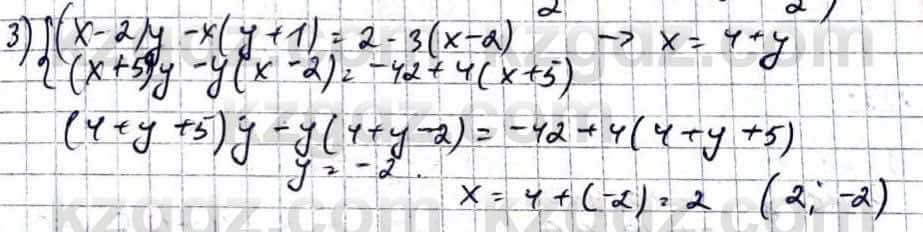 3) { (x-2)y - x(y+1) = 2 - 3(x-2) → x = 4+y
(x+5)y - y(x-2) = -42 + 4(x+5)
(4+y+5)y - y(4+y-2) = -42 + 4(4+y+5)
y = -2.
x = 4 + (-2) = 2 (2; -2)